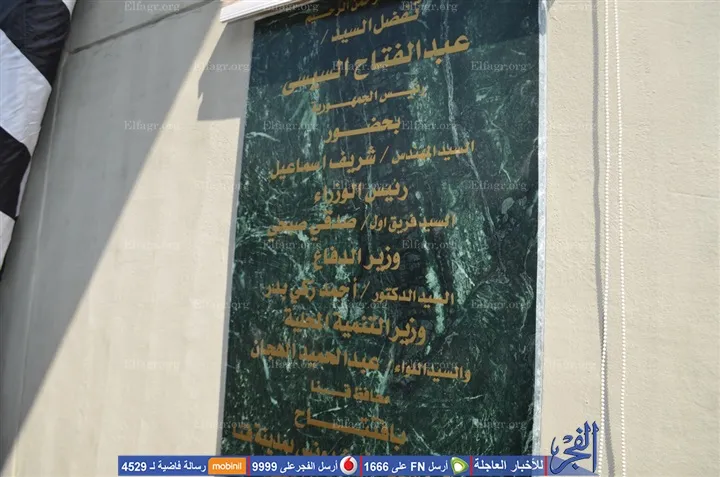 تفضل السيد /
عبد الفتاح السيسى
رئيس الجمهورية
بحضور
السيد المهندس / شريف اسماعيل
رئيس الوزراء
السيد فريق اول / صدقي صبحى
وزير الدفاع
السيد الدكتور / أحمد زكي بدر
وزير التنمية المحلية
والسيد اللواء / عبد الحميد الهجان
محافظ قنا
بافتتاح
الفجر
للأخبار العاجلة
أرسل FN على 1666
أرسل الفجر على 9999
mobinil
رسالة فاضية لـ 4529
Elfagr.org